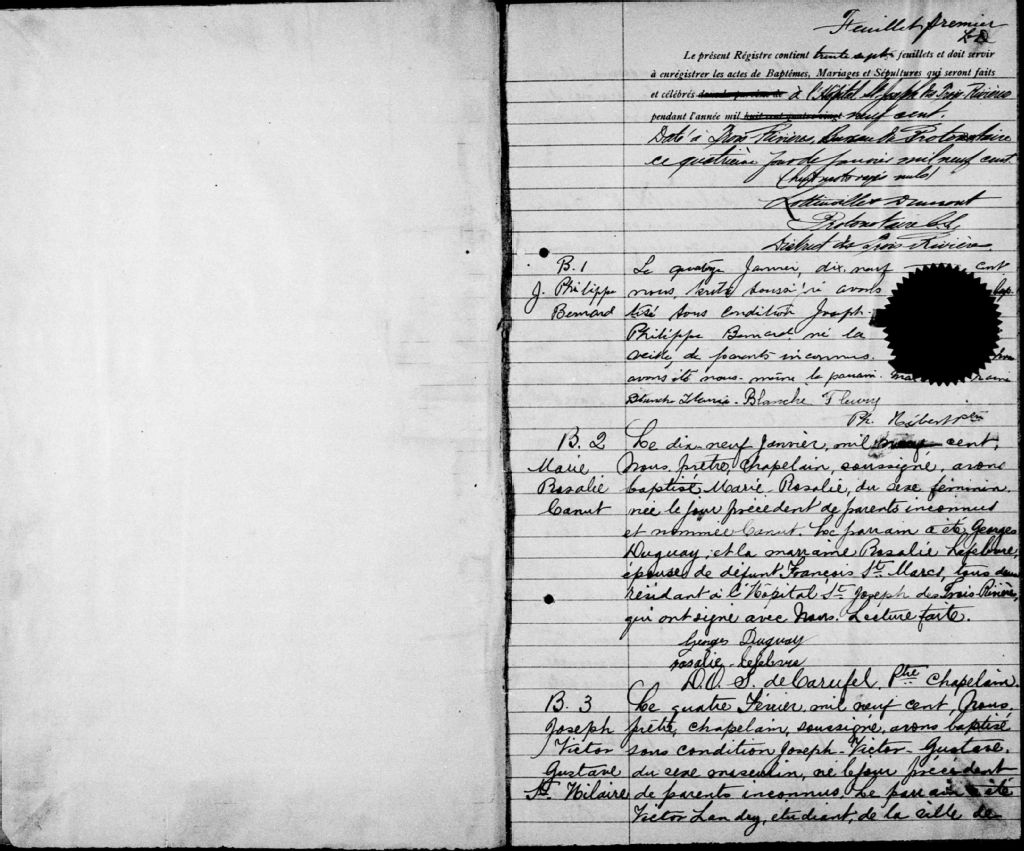 Feuillet premier
L.D.
Le présent Régistre contient trente sept feuillets et doit servir
à enregistrer les actes de Baptêmes, Mariages et Sépultures qui seront faits
et célébrés à l'Hôpital St Joseph des Trois Rivières
pendant l'année mil huit cent quatre vingt neuf cent.
Daté à Trois Rivières, Bureau du Protonotaire
ce quatrième jour de janvier mil neuf cent
Protonotaire C.S.
District des Trois Rivières.
B. 1
J. Philippe
Bernard
Le quatorze Janvier, dix neuf cent
nous, soussigné avons bap-
tisé sous condition Joseph-
Philippe Bernard né la
veille, de parents inconnus.
avons été nous-même le parrain.
Blanche Fleury
Ph. Hébert ptre
B. 2
Marie
Rosalie
Canut
Le dix-neuf Janvier, mil neuf cent,
Nous, prêtre, chapelain, soussigné, avons
baptisé Marie Rosalie, du sexe féminin
née le jour précédent de parents inconnus
et nommée Canut. Le parrain a été Georges
Duguay, et la marraine Rosalie Lefebvre,
épouse de défunt François St. Marcs, tous deux
résidant à l'Hôpital St. Joseph des Trois-Rivières,
qui ont signé avec Nous. Lecture faite.
Georges Duguay
rosalie lefebvre
D. O. S. de Carufel, Ptre Chapelain.
B. 3
Joseph
Victor
Gustave
St. Hilaire
Le quatre Février, mil neuf cent, Nous,
prêtre, chapelain, soussigné, avons baptisé
sous condition Joseph-Victor-Gustave,
du sexe masculin, né le jour précédent
de parents inconnus. Le parrain a été
Victor Landry, étudiant, de la ville de